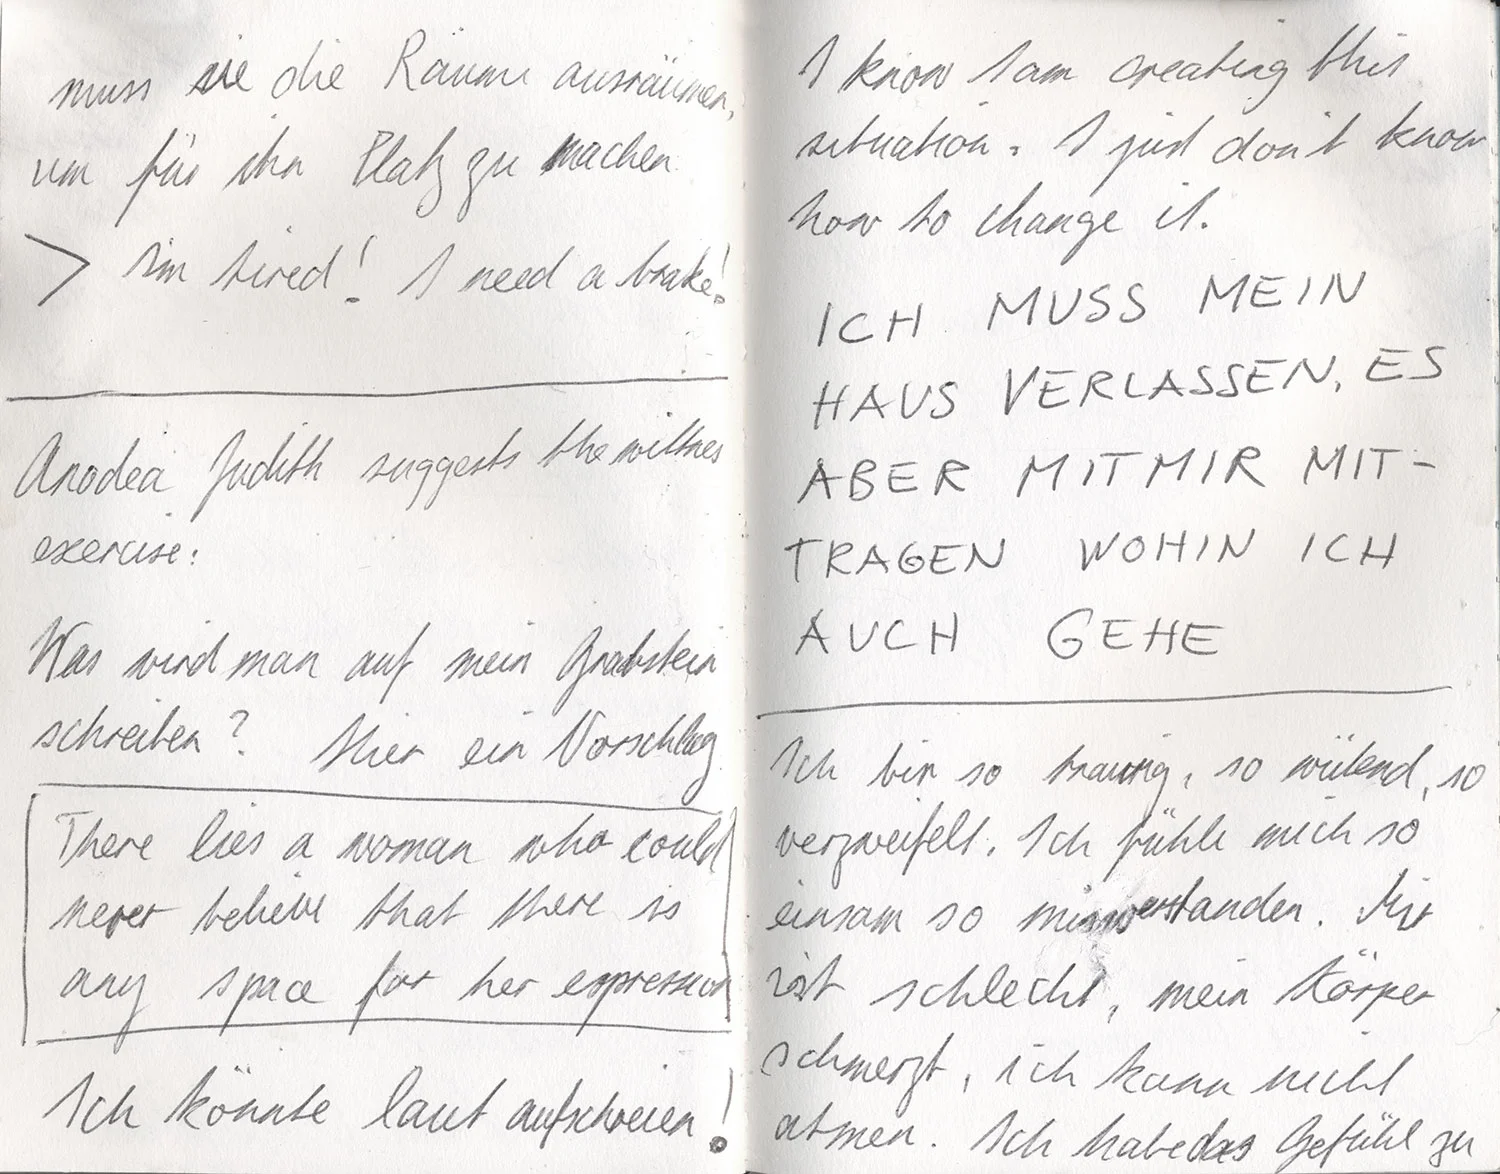 muss sie die Räume ausräumen,
um für ihn Platz zu machen.
> I'm tired! I need a brake!
Anodea Judith suggests the wittnes
exercise:
Was wird man auf mein Grabstein
schreiben? Hier ein Vorschlag
There lies a woman who could
never believe that there is
any space for her expression
Ich könnte laut aufschreien!
I know I am creating this
situation. I just don't know
how to change it.
ICH MUSS MEIN
HAUS VERLASSEN, ES
ABER MIT MIR MIT-
TRAGEN WOHIN ICH
AUCH GEHE
Ich bin so traurig, so wütend, so
verzweifelt. Ich fühle mich so
einsam so missverstanden. Mir
ist schlecht, mein Körper
schmerzt, ich kann nicht
atmen. Ich habe das Gefühl zu